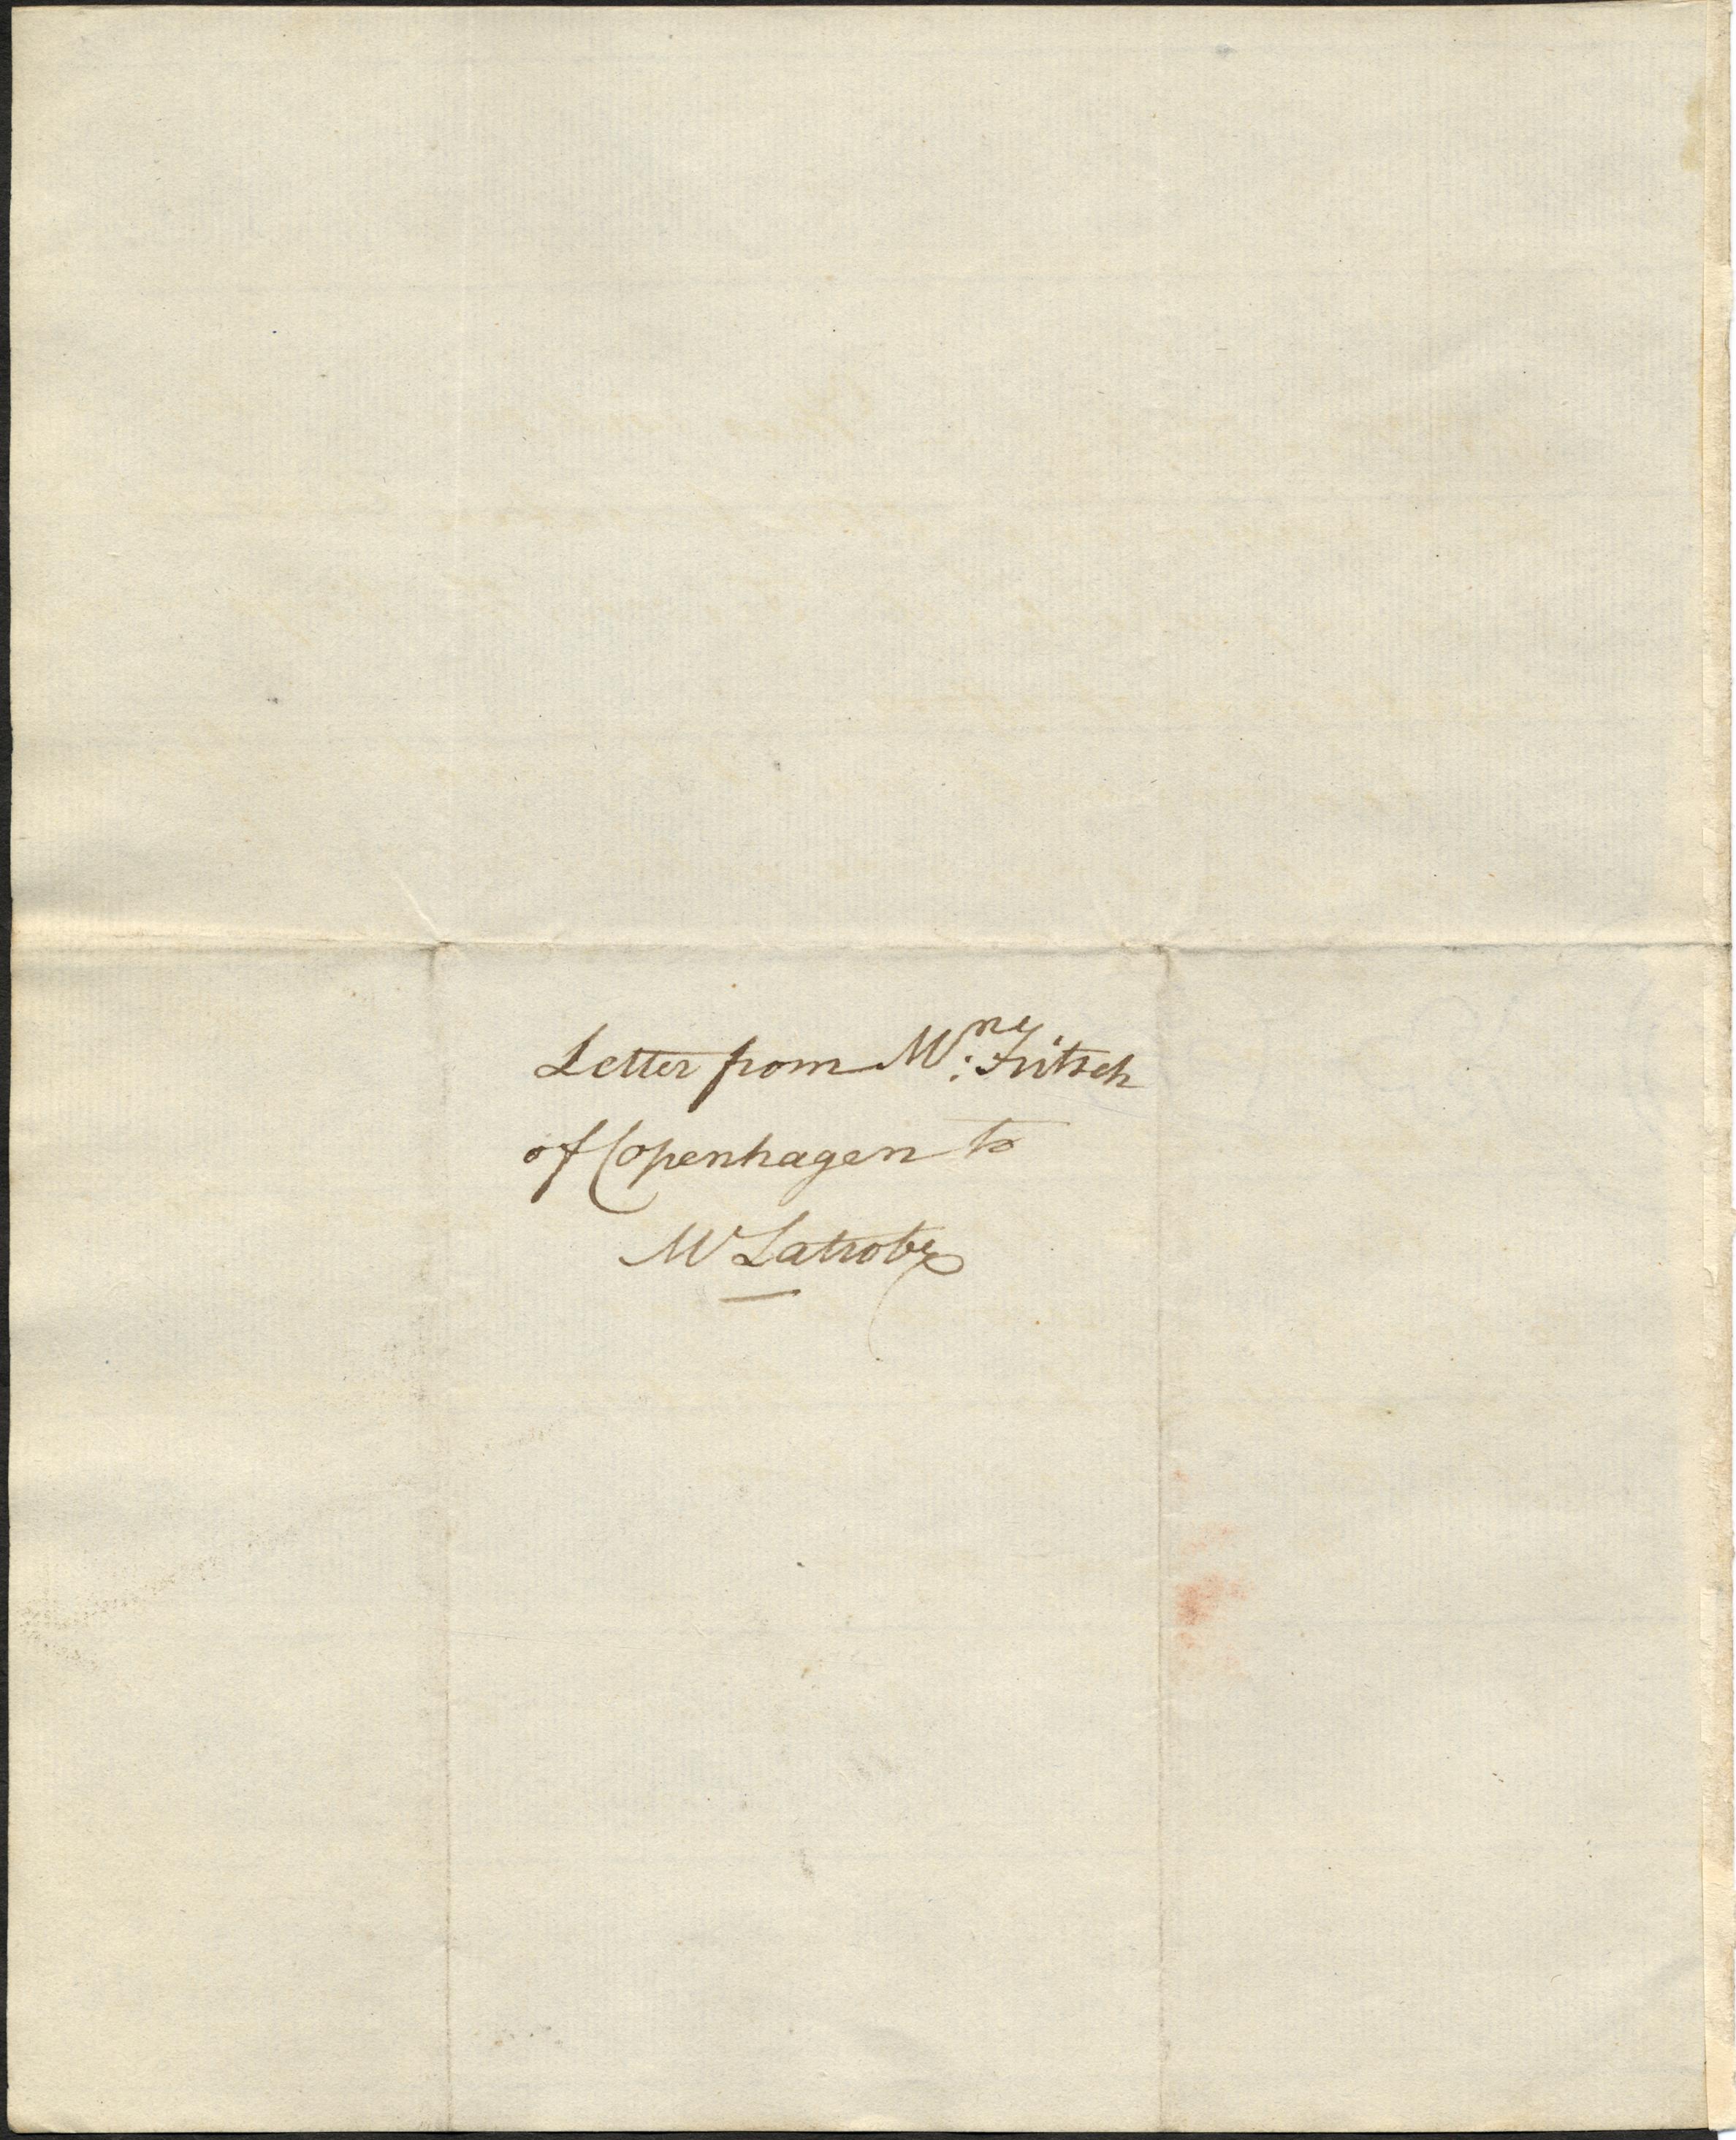 Letter from M:ne Fritsch
of Copenhagen to
Mr Latrobe